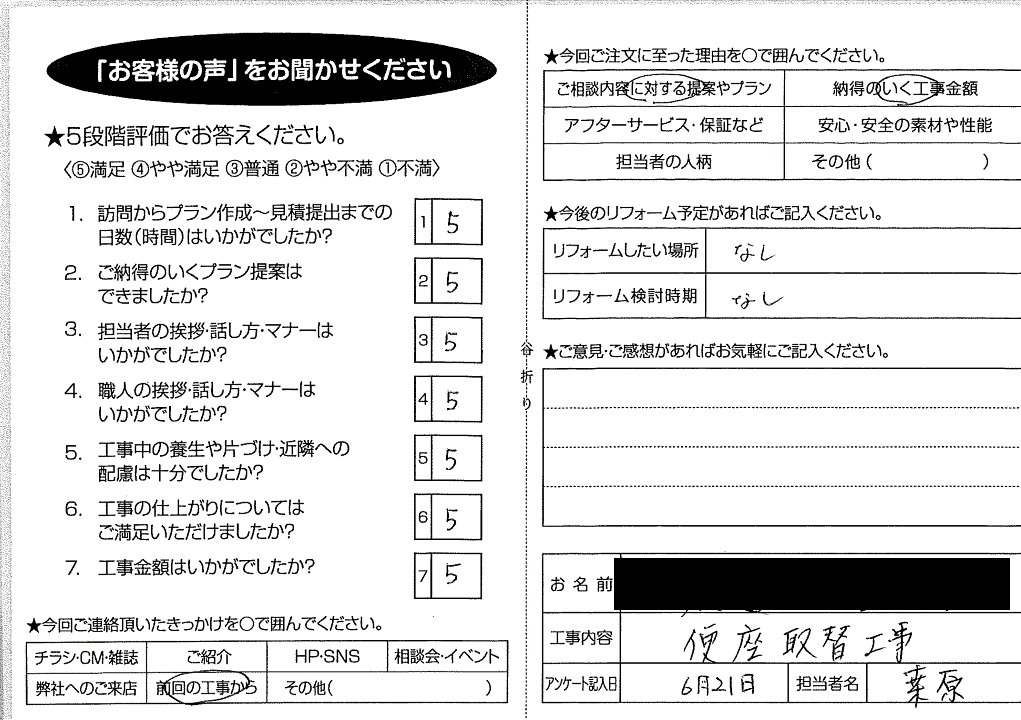 「お客様の声」をお聞かせください
★5段階評価でお答えください。
〈⑤満足 ④やや満足 ③普通 ②やや不満 ①不満〉
1. 訪問からプラン作成～見積提出までの
日数(時間)はいかがでしたか?
1 5
2. ご納得のいくプラン提案は
できましたか?
2 5
3. 担当者の挨拶・話し方・マナーは
いかがでしたか?
3 5
4. 職人の挨拶・話し方・マナーは
いかがでしたか?
4 5
5. 工事中の養生や片づけ・近隣への
配慮は十分でしたか?
5 5
6. 工事の仕上がりについては
ご満足いただけましたか?
6 5
7. 工事金額はいかがでしたか?
7 5
★今回ご連絡頂いたきっかけを○で囲んでください。
チラシ・CM・雑誌 ご紹介 HP・SNS 相談会・イベント
弊社へのご来店 前回の工事から その他( )
谷折り
★今回ご注文に至った理由を○で囲んでください。
ご相談内容に対する提案やプラン 納得のいく工事金額
アフターサービス・保証など 安心・安全の素材や性能
担当者の人柄 その他( )
★今後のリフォーム予定があればご記入ください。
リフォームしたい場所 なし
リフォーム検討時期 なし
★ご意見・ご感想があればお気軽にご記入ください。
お名前
工事内容 便座取替工事
アンケート記入日 6月21日 担当者名 葉原